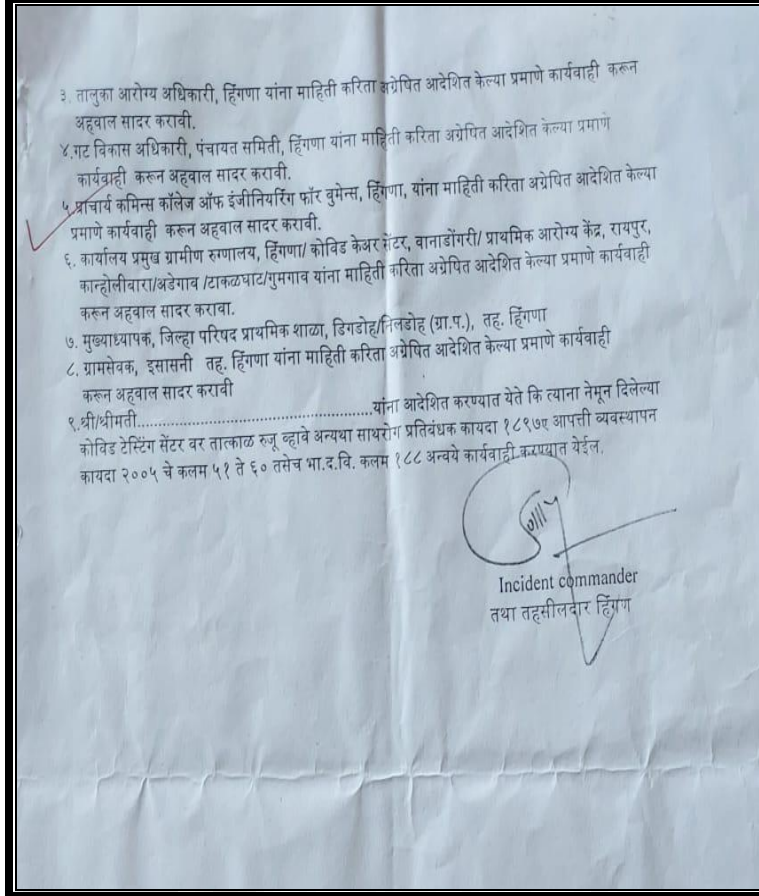 ३. तालुका आरोग्य अधिकारी, हिंगणा यांना माहिती करिता अग्रेषित आदेशित केल्या प्रमाणे कार्यवाही करून
अहवाल सादर करावी.
४.गट विकास अधिकारी, पंचायत समिती, हिंगणा यांना माहिती करिता अग्रेषित आदेशित केल्या प्रमाणे
कार्यवाही करून अहवाल सादर करावी.
५.प्राचार्य कमिन्स कॉलेज ऑफ इंजीनियरिंग फॉर वुमेन्स, हिंगणा, यांना माहिती करिता अग्रेषित आदेशित केल्या
प्रमाणे कार्यवाही करून अहवाल सादर करावी.
६. कार्यालय प्रमुख ग्रामीण रुग्णालय, हिंगणा/ कोविड केअर सेंटर, वानाडोंगरी/ प्राथमिक आरोग्य केंद्र, रायपुर,
कान्होलीवारा/अडेगाव /टाकळघाट/गुमगाव यांना माहिती करिता अग्रेषित आदेशित केल्या प्रमाणे कार्यवाही
करून अहवाल सादर करावा.
७. मुख्याध्यापक, जिल्हा परिषद प्राथमिक शाळा, डिगडोह/निलडोह (ग्रा.प.), तह. हिंगणा
८. ग्रामसेवक, इसासनी तह. हिंगणा यांना माहिती करिता अग्रेषित आदेशित केल्या प्रमाणे कार्यवाही
करून अहवाल सादर करावी
९.श्री/श्रीमती..................................................यांना आदेशित करण्यात येते कि त्याना नेमून दिलेल्या
कोविड टेस्टिंग सेंटर वर तात्काळ रुजू व्हावे अन्यथा साथरोग प्रतिबंधक कायदा १८९७ए आपत्ती व्यवस्थापन
कायदा २००५ चे कलम ५१ ते ६० तसेच भा.द.वि. कलम १८८ अन्वये कार्यवाही करण्यात येईल.
Incident commander
तथा तहसीलदार हिंगण